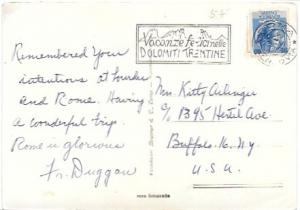 57
Vacanze serene nelle
DOLOMITI TRENTINE
Remembered Your
intentions at Lourdes
and Rome. Having
a wonderful trip.
Rome is glorious
Fr. Duggan
Miss Kitty Aulinger
c/o 1395 Hertel Ave
Buffalo 16. N.Y
U.S.A
vera fotografia